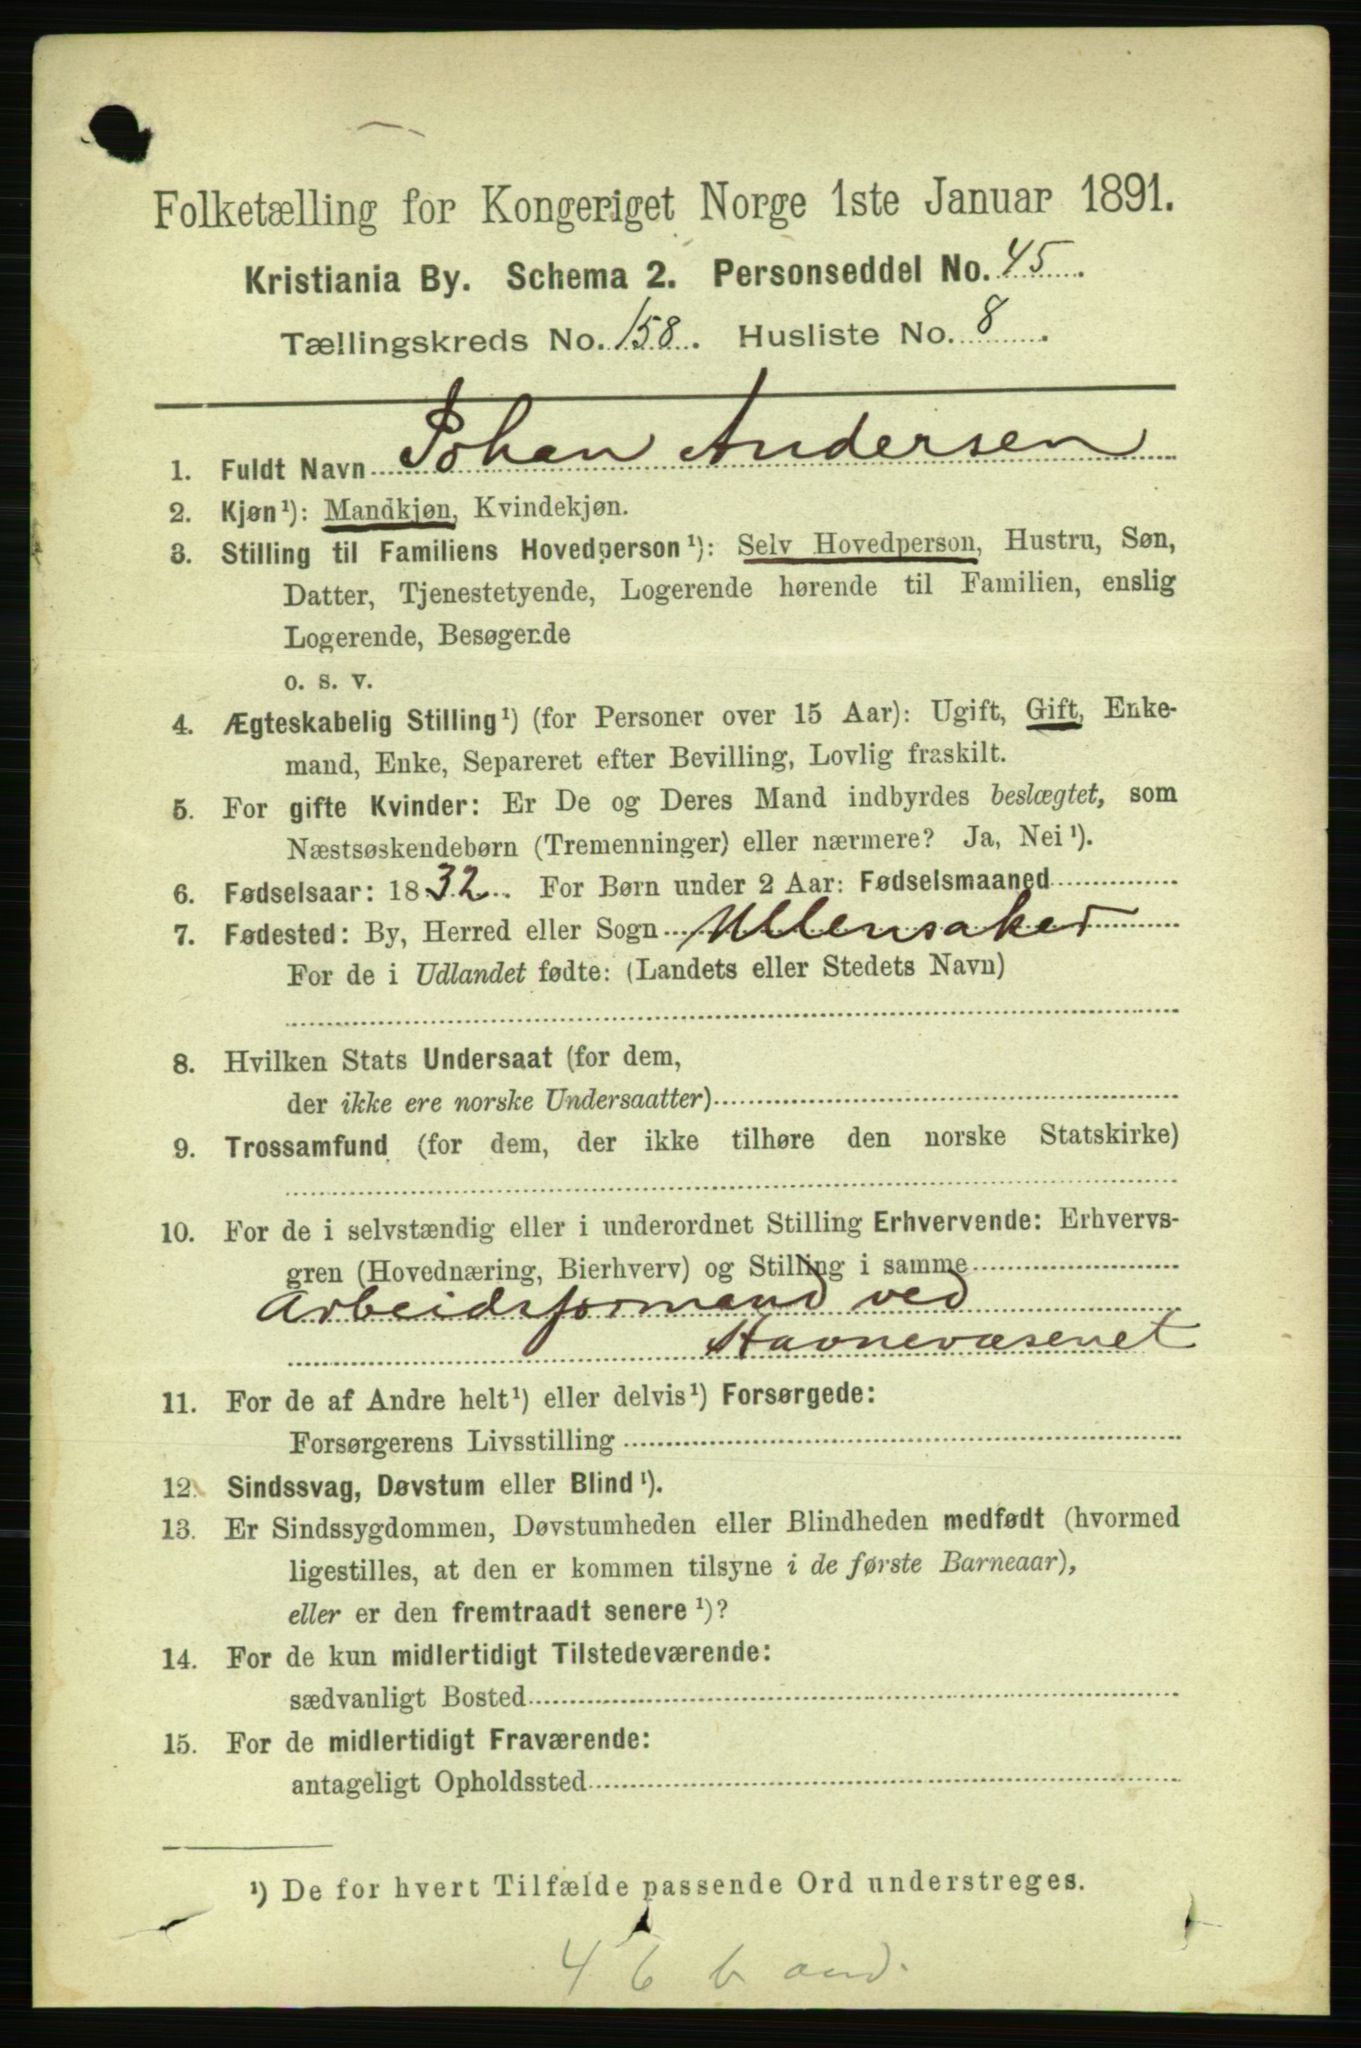 Folketælling for Kongeriget Norge 1ste Januar 1891.
Kristiania By. Schema 2. Personseddel No. 45.
Tællingskreds No. 158. Husliste No. 8.
1. Fuldt Navn Johan Andersen
2. Kjøn¹): Mandkjøn, Kvindekjøn.
3. Stilling til Familiens Hovedperson¹): Selv Hovedperson, Hustru, Søn,
Datter, Tjenestetyende, Logerende hørende til Familien, enslig
Logerende, Besøgende
o. s. v.
4. Ægteskabelig Stilling¹) (for Personer over 15 Aar): Ugift, Gift, Enke-
mand, Enke, Separeret efter Bevilling, Lovlig fraskilt.
5. For gifte Kvinder: Er De og Deres Mand indbyrdes beslægtet, som
Næstsøskendebørn (Tremenninger) eller nærmere? Ja, Nei¹).
6. Fødselsaar: 1832. For Børn under 2 Aar: Fødselsmaaned
7. Fødested: By, Herred eller Sogn Ullensaker
For de i Udlandet fødte: (Landets eller Stedets Navn)
8. Hvilken Stats Undersaat (for dem,
der ikke ere norske Undersaatter)
9. Trossamfund (for dem, der ikke tilhøre den norske Statskirke)
10. For de i selvstændig eller i underordnet Stilling Erhvervende: Erhvervs-
gren (Hovednæring, Bierhverv) og Stilling i samme
Arbeidsformand ved
Havnevæsenet
11. For de af Andre helt¹) eller delvis¹) Forsørgede:
Forsørgerens Livsstilling
12. Sindssvag, Døvstum eller Blind¹).
13. Er Sindssygdommen, Døvstumheden eller Blindheden medfødt (hvormed
ligestilles, at den er kommen tilsyne i de første Barneaar),
eller er den fremtraadt senere¹)?
14. For de kun midlertidigt Tilstedeværende:
sædvanligt Bosted
15. For de midlertidigt Fraværende:
antageligt Opholdssted
¹) De for hvert Tilfælde passende Ord understreges.
46 b